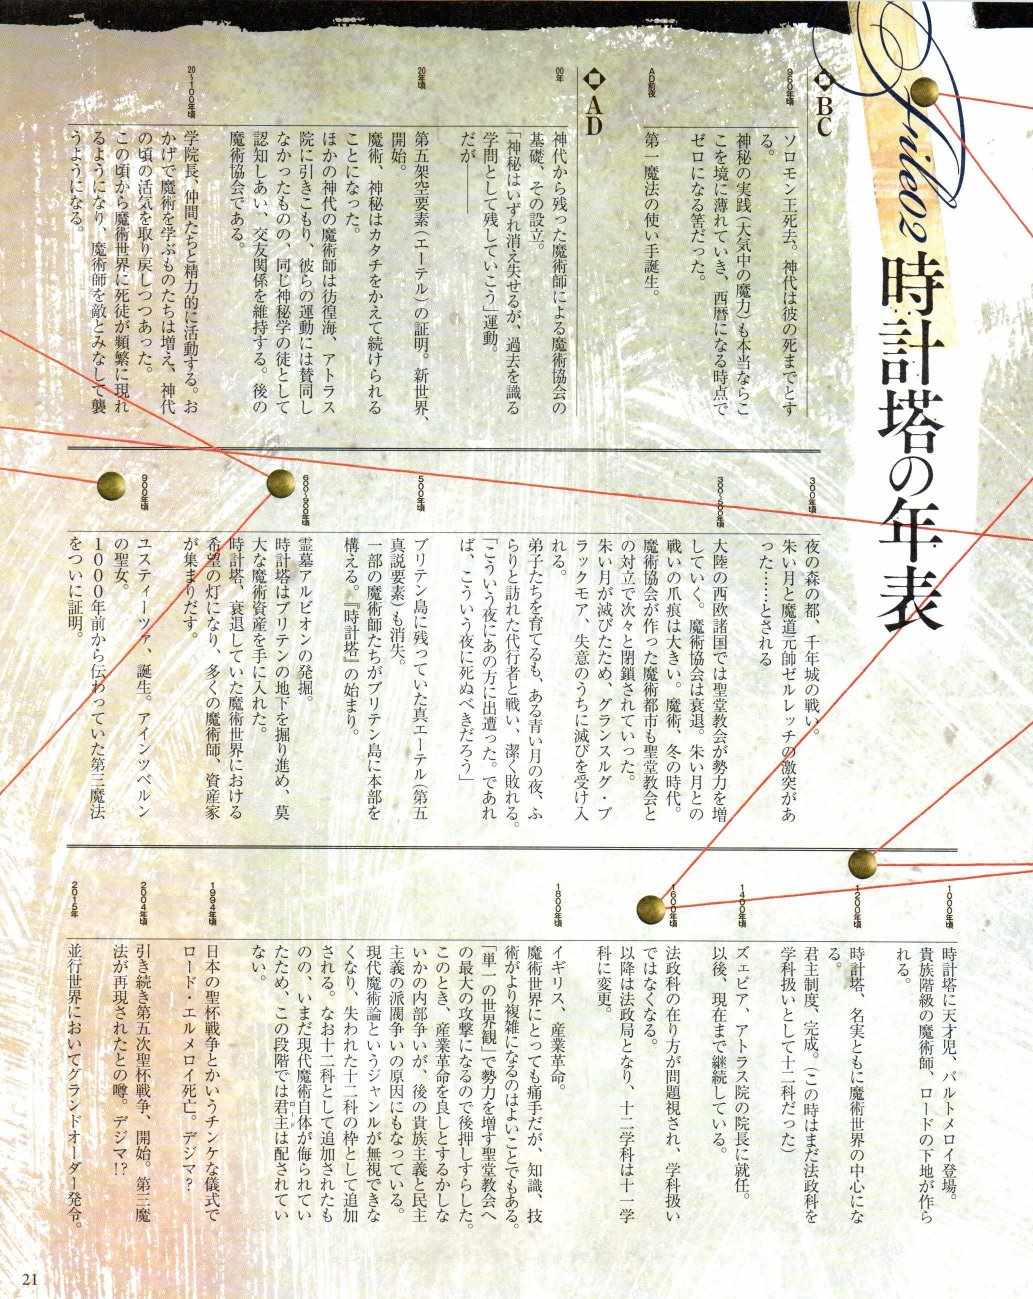 File02
時計塔の年表
BC
960年頃
ソロモン王死去。神代は彼の死までとす
る。
神秘の実践（大気中の魔力）も本当ならこ
こを境に薄れていき、西暦になる時点で
ゼロになる筈だった。
AD前夜
第一魔法の使い手誕生。
AD
00年
神代から残った魔術師による魔術協会の
基礎、その設立。
「神秘はいずれ消え失せるが、過去を識る
学問として残していこう」運動。
だが――
20年頃
第五架空要素（エーテル）の証明。新世界、
開始。
魔術、神秘はカタチをかえて続けられる
ことになった。
ほかの神代の魔術師は彷徨海、アトラス
院に引きこもり、彼らの運動には賛同し
なかったものの、同じ神秘学の徒として
認知しあい、交友関係を維持する。後の
魔術協会である。
20~100年頃
学院長、仲間たちと精力的に活動する。お
かげで魔術を学ぶものたちは増え、神代
の頃の活気を取り戻しつつあった。
この頃から魔術世界に死徒が頻繁に現れ
るようになり、魔術師を敵とみなして襲
うようになる。
300年頃
夜の森の都、千年城の戦い。
朱い月と魔道元帥ゼルレッチの激突があ
った……とされる
300~500年頃
大陸の西欧諸国では聖堂教会が勢力を増
していく。魔術協会は衰退。朱い月との
戦いの爪痕は大きい。魔術、冬の時代。
魔術協会が作った魔術都市も聖堂教会と
の対立で次々と閉鎖されていった。
朱い月が滅びたため、グランスルグ・ブ
ラックモア、失意のうちに滅びを受け入
れる。
弟子たちを育てるも、ある青い月の夜、ふ
らりと訪れた代行者と戦い、潔く敗れる。
「こういう夜にあの方に出遭った。であれ
ば、こういう夜に死ぬべきだろう」
500年頃
ブリテン島に残っていた真エーテル（第五
真説要素）も消失。
一部の魔術師たちがブリテン島に本部を
構える。『時計塔』の始まり。
600~900年頃
霊墓アルビオンの発掘。
時計塔はブリテンの地下を掘り進め、莫
大な魔術資産を手に入れた。
時計塔、衰退していた魔術世界における
希望の灯になり、多くの魔術師、資産家
が集まりだす。
900年頃
ユスティーツァ、誕生。アインツベルン
の聖女。
1000年前から伝わっていた第三魔法
をついに証明。
1000年頃
時計塔に天才児、バルトメロイ登場。
貴族階級の魔術師、ロードの下地が作ら
れる。
1200年頃
時計塔、名実ともに魔術世界の中心にな
る。
君主制度、完成。（この時はまだ法政科を
学科扱いとして十二科だった）
1400年頃
ズェピア、アトラス院の院長に就任。
以後、現在まで継続している。
1600年頃
法政科の在り方が問題視され、学科扱い
ではなくなる。
以降は法政局となり、十二学科は十一学
科に変更。
1800年頃
イギリス、産業革命。
魔術世界にとっても痛手だが、知識、技
術がより複雑になるのはよいことでもある。
「単一の世界観」で勢力を増す聖堂教会へ
の最大の攻撃になるので後押しすらした。
このとき、産業革命を良しとするかしな
いかの内部争いが、後の貴族主義と民主
主義の派閥争いの原因にもなっている。
現代魔術論というジャンルが無視できな
くなり、失われた十二科の枠として追加
される。なお十二科として追加されたも
のの、いまだ現代魔術自体が侮られてい
たため、この段階では君主は配されてい
ない。
1994年頃
日本の聖杯戦争とかいうチンケな儀式で
ロード・エルメロイ死亡。デジマ？
2004年頃
引き続き第五次聖杯戦争、開始。第三魔
法が再現されたとの噂。デジマ!?
2015年
並行世界においてグランドオーダー発令。
21